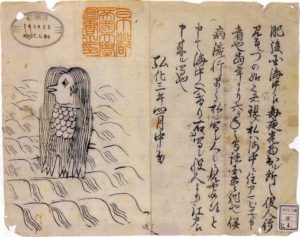 肥後国海中江毎夜光物出ル所之役人行
見るニづの如之者現ス私ハ海中ニ住アマビヱト申
者也当年より六ヶ年之間諸国豊作也併
病流行早々私ヲ写シ人々ニ見セ候得と
申て海中へ入けり右ハ写シ役人より江戸江
申来ル写也
弘化三年四月中旬